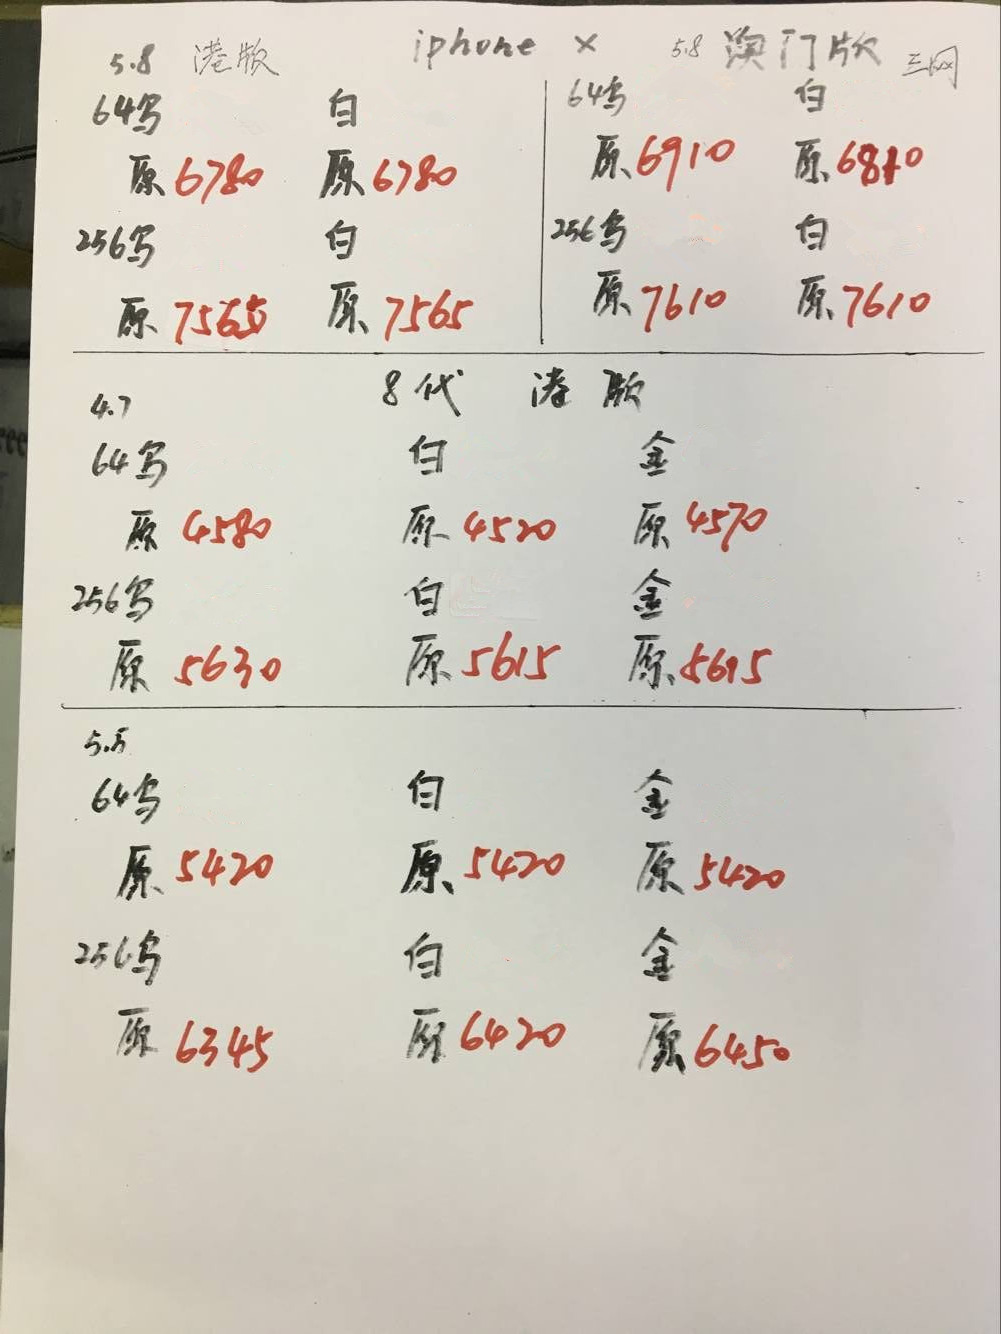 5.8 港版 iphone X 5.8 澳门版 三网
64乌 白 64乌 白
原 6780 原 6780 原 6910 原 6810
256乌 白 256乌 白
原 7565 原 7565 原 7610 原 7610
4.7 8代 港版
64乌 白 金
原 4580 原 4520 原 4570
256乌 白 金
原 5630 原 5615 原 5695
5.5
64乌 白 金
原 5420 原 5420 原 5420
256乌 白 金
原 6345 原 6420 原 6450